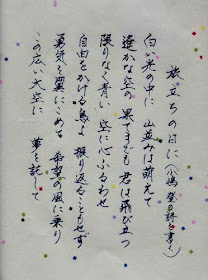 旅立ちの日に(小嶋登の詩を書く)
白い光の中に 山並みは萌えて
遙かな空の 果てまでも 君は飛び立つ
限りなく青い 空に心ふるわせ
自由をかける鳥よ 振り返ることもせず
勇気を翼にこめて 希望の風に乗り
この広い大空に 夢を託して